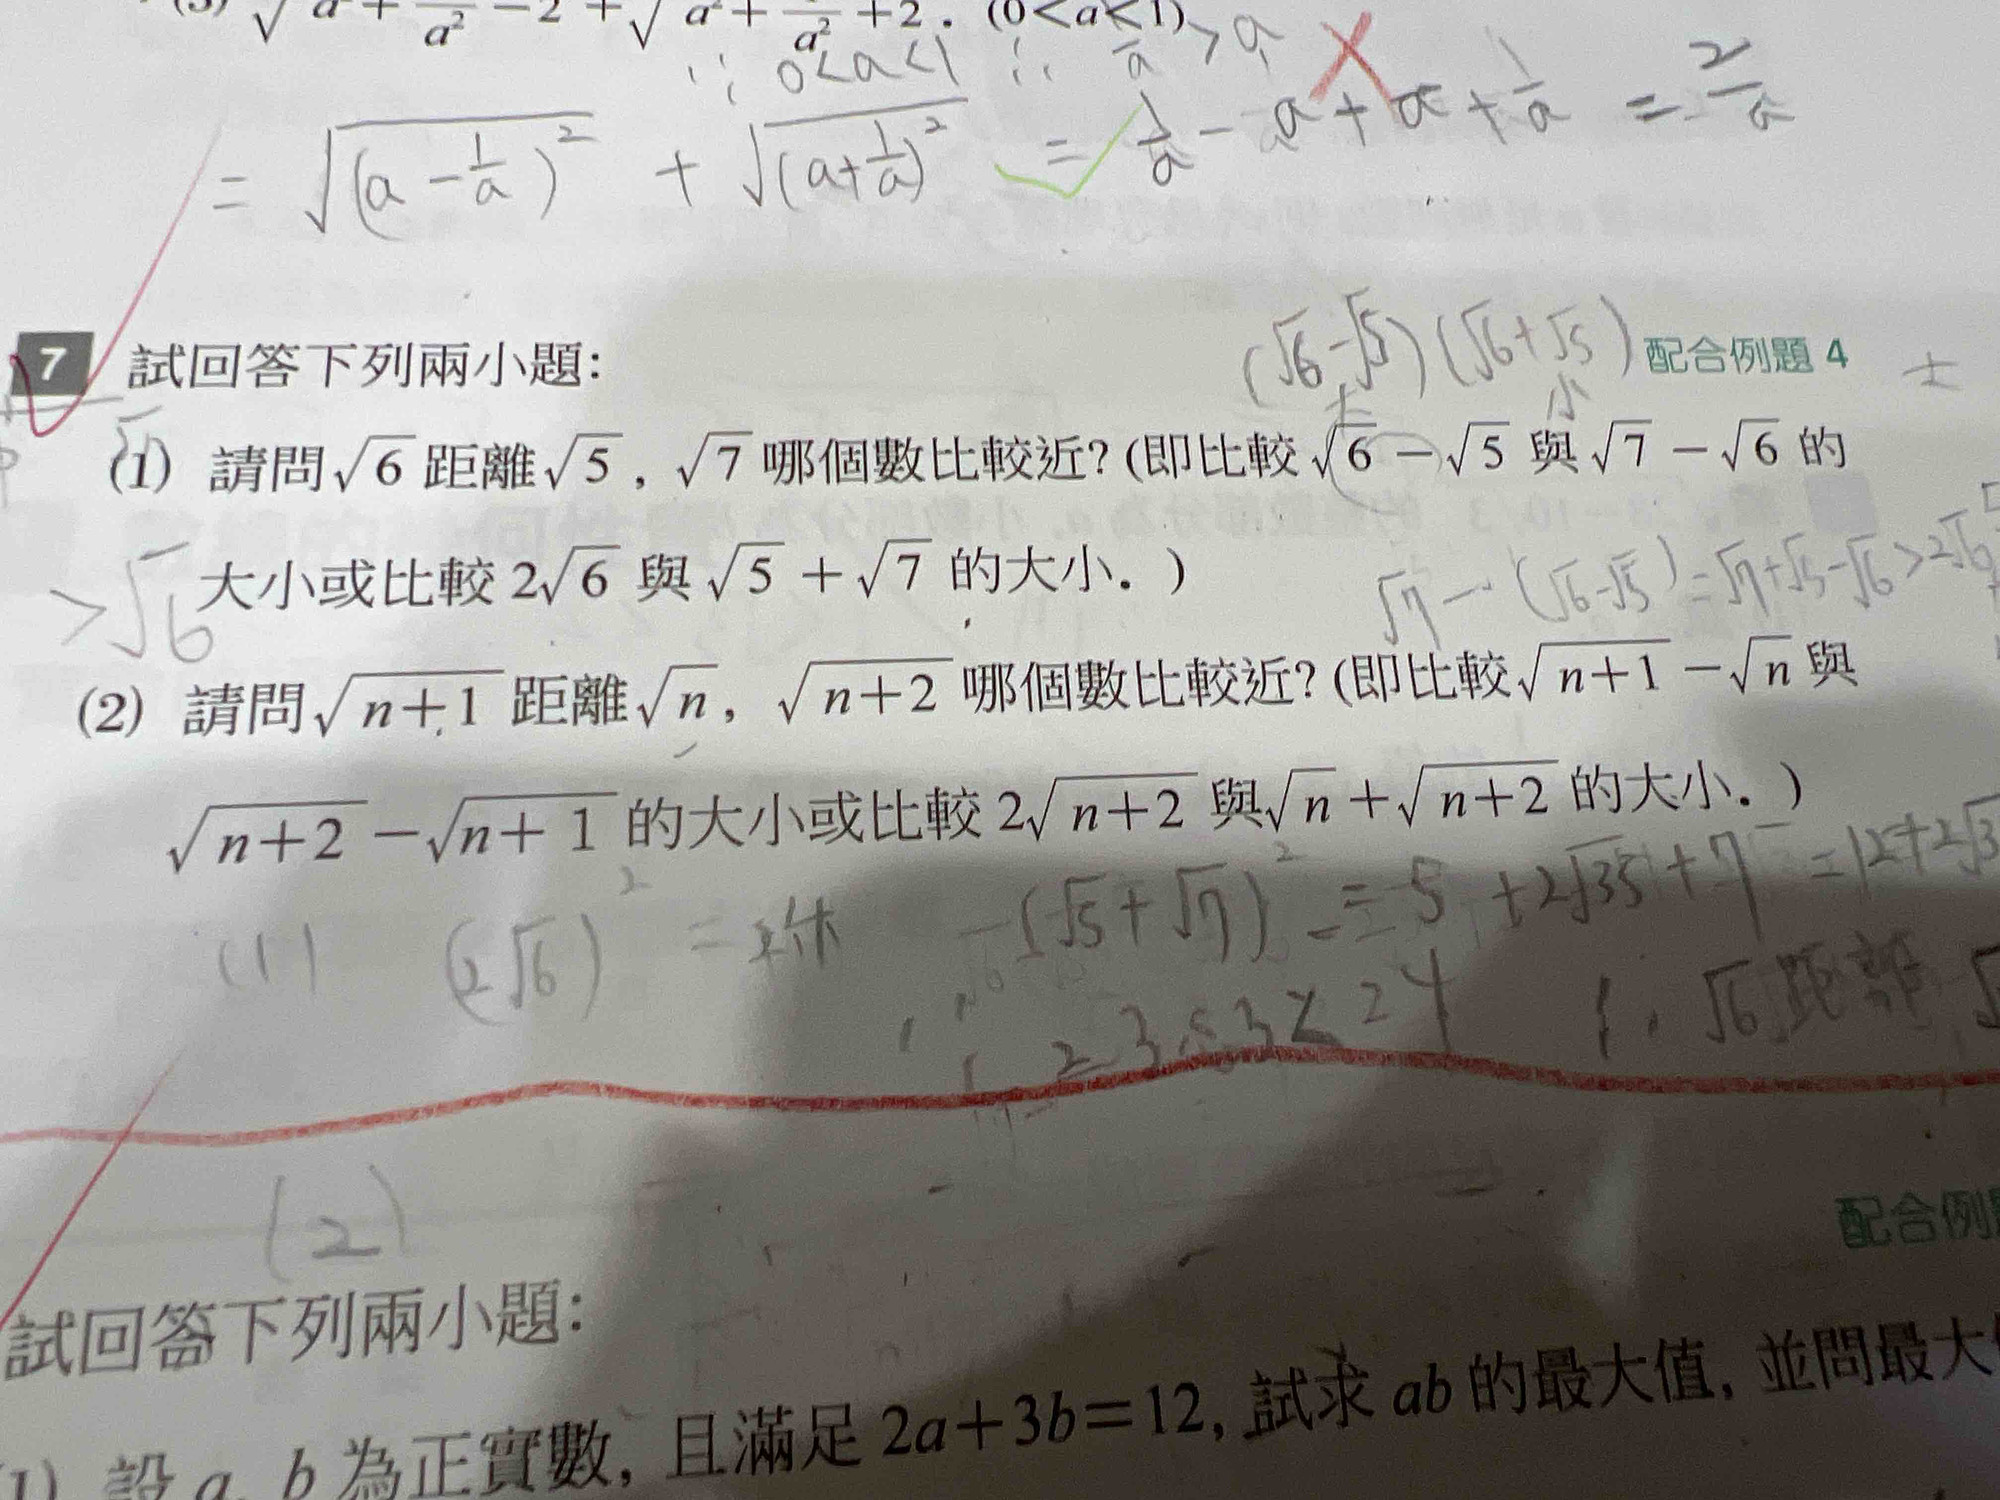 (3) √a²+1/a²−2+√a²+1/a²+2. (0<a<1)
∵ 0<a<1 ∴ 1/a > a
= √(a−1/a)² + √(a+1/a)² = 1/a − a + a + 1/a = 2/a
(√6−√5)(√6+√5)
7 試回答下列兩小題： 配合例題 4
大 小
(1) 請問√6 距離√5，√7 哪個數比較近？(即比較 √6−√5 與 √7−√6 的
大小或比較 2√6 與 √5+√7 的大小．)
>√6
√7−(√6−√5)=√7+√5−√6>2√6
(2) 請問√n+1 距離√n，√n+2 哪個數比較近？(即比較√n+1−√n 與
√n+2−√n+1 的大小或比較 2√n+2 與√n+√n+2 的大小．)
(1) (2√6)² = (√5+√7)² = 5+2√35+7 = 12+2√3
<24 ∴ √6距離√
(2)
配合例
試回答下列兩小題：
1) 設 a, b 為正實數，且滿足 2a+3b=12, 試求 ab 的最大值，並問最大